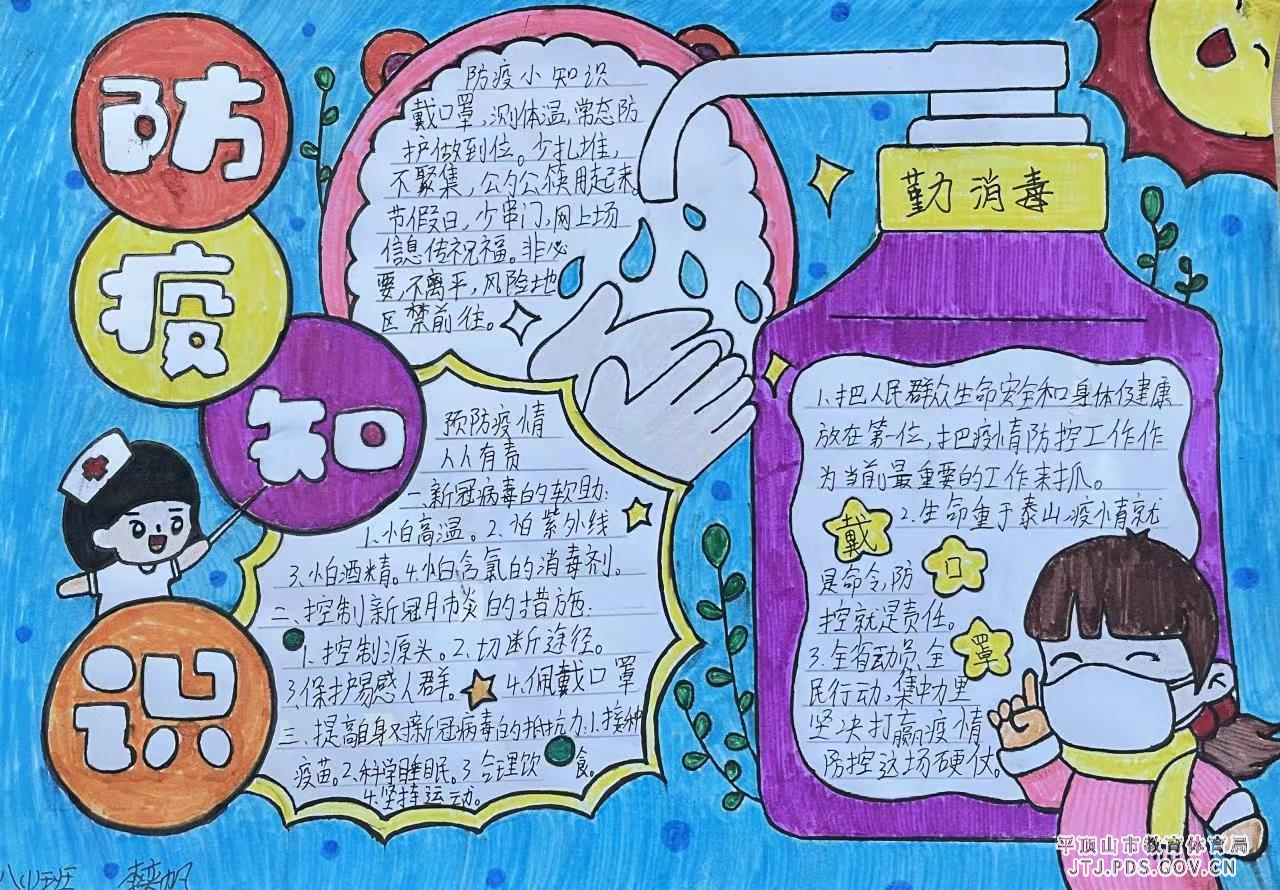 防
疫
知
识
防疫小知识
戴口罩,测体温,常态防
护做到位。少扎堆,
不聚集,公勺公筷用起来。
节假日,少串门,网上场
信息传祝福。非必
要,不离平,风险地
区禁前往。
勤消毒
预防疫情
人人有责
一、新冠病毒的软助:
1.怕高温。2.怕紫外线
3.怕酒精。4.怕含氯的消毒剂。
二、控制新冠肺炎的措施:
1.控制源头。2.切断途径。
3.保护易感人群。4.佩戴口罩
三、提高自身对新冠病毒的抵抗力:1.接种
疫苗。2.科学睡眠。3.合理饮食。
4.坚持运动。
1.把人民群众生命安全和身体健康
放在第一位,把疫情防控工作作
为当前最重要的工作来抓。
2.生命重于泰山,疫情就
是命令,防
控就是责任。
3.全省动员、全
民行动,集中力量
坚决打赢疫情
防控这场硬仗。
戴
口
罩
八(1)班
平顶山市教育体育局
JTJ.PDS.GOV.CN